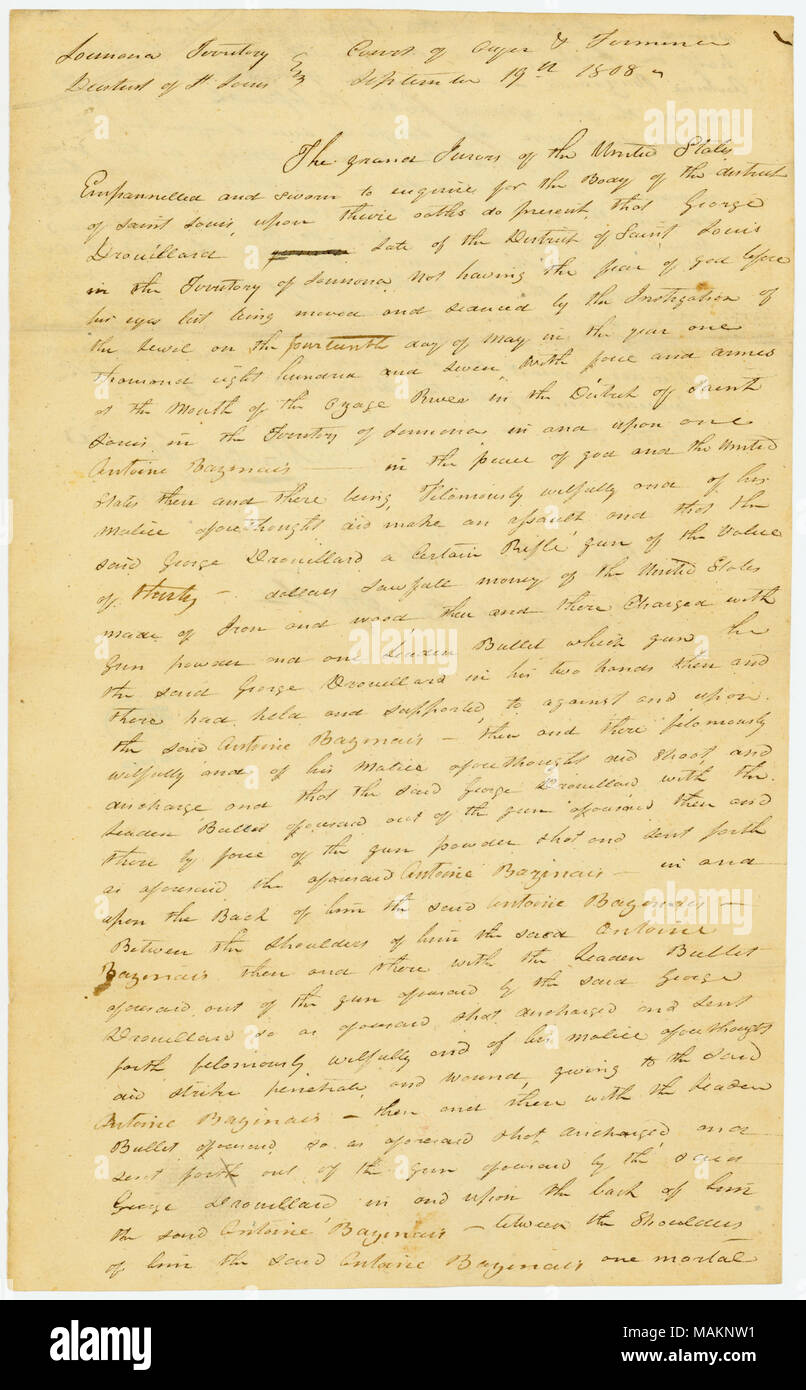 Louisiana Territory } Court of Oyer & Terminer
District of St Louis } September 19th 1808
The grand Jurors of the United States
Empannelled and sworn to enquire for the Body of the district
of Saint Louis, upon theire oaths do present, that George
Drouillard late of the District of Saint Louis
in the Territory of Louisiana, not having the fear of god before
his eyes but being moved and seduced by the Instigation of
the Devil on the fourteenth day of May in the year one
thousand eight hundred and seven, with force and armes
at the Mouth of the Ozage River in the District of Saint
Louis in the Territory of Louisiana in and upon one
Antoine Bazinais in the peace of god and the United
States then and there being, felomously wilfully and of his
Malice aforethought did make an assault and that the
said George Drouillard a Certain Rifle gun of the Value
of thirty - dollars Lawfull money of the United States
made of Iron and wood then and there Charged with
Gun powder and one Leaden Bullet which gun he
the said George Drouillard in his two hands then and
there had, held and supported, to against and upon
the said Antoine Bazinais - then and there feloniously
wilfully and of his Malice aforethought did Shoot and
discharge and that the said George Drouillard with the
Leaden Bullet aforesaid out of the gun aforesaid then and
there by force of the gun powder shot and sent forth
as aforesaid the aforesaid Antoine Bazinais - in and
upon the Back of him the said Antoine Bazinais -
Between the shoulders of him the said Antoine
Bazinais then and there with the Leaden Bullet
aforesaid out of the gun aforesaid by the said George
Drouillard so as aforesaid shot discharged and Sent
forth feloniously wilfully and of his malice aforethought
did strike penetrate and wound, giving to the said
Antoine Bazinais - then and there with the Leaden
Bullet aforesaid so as aforesaid shot, discharged and
sent forth out of the gun aforesaid by the said
George Drouillard in and upon the back of him
the said Antoine Bazinais - between the Shoulders
of him the said Antoine Bazinais one mortal
alamy
alamy
alamy
Image ID: MAKNW1
www.alamy.com